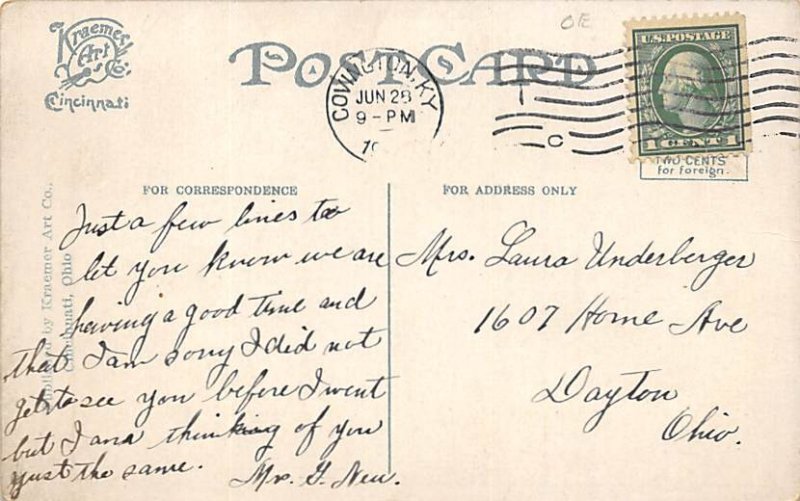 Kraemer
Art
Co.
Cincinnati
POST CARD
COVINGTON, KY.
JUN 28
9 - PM
19
U.S. POSTAGE
1 CENT 1
TWO CENTS
for foreign.
FOR CORRESPONDENCE
FOR ADDRESS ONLY
by Kraemer Art Co.,
Cincinnati, Ohio
Just a few lines to
let you know we are
having a good time and
that I am sorry I did not
get to see you before I went
but I am thinking of you
just the same.
Mrs. G. New.
Mrs. Laura Underberger
1607 Home Ave
Dayton
Ohio.